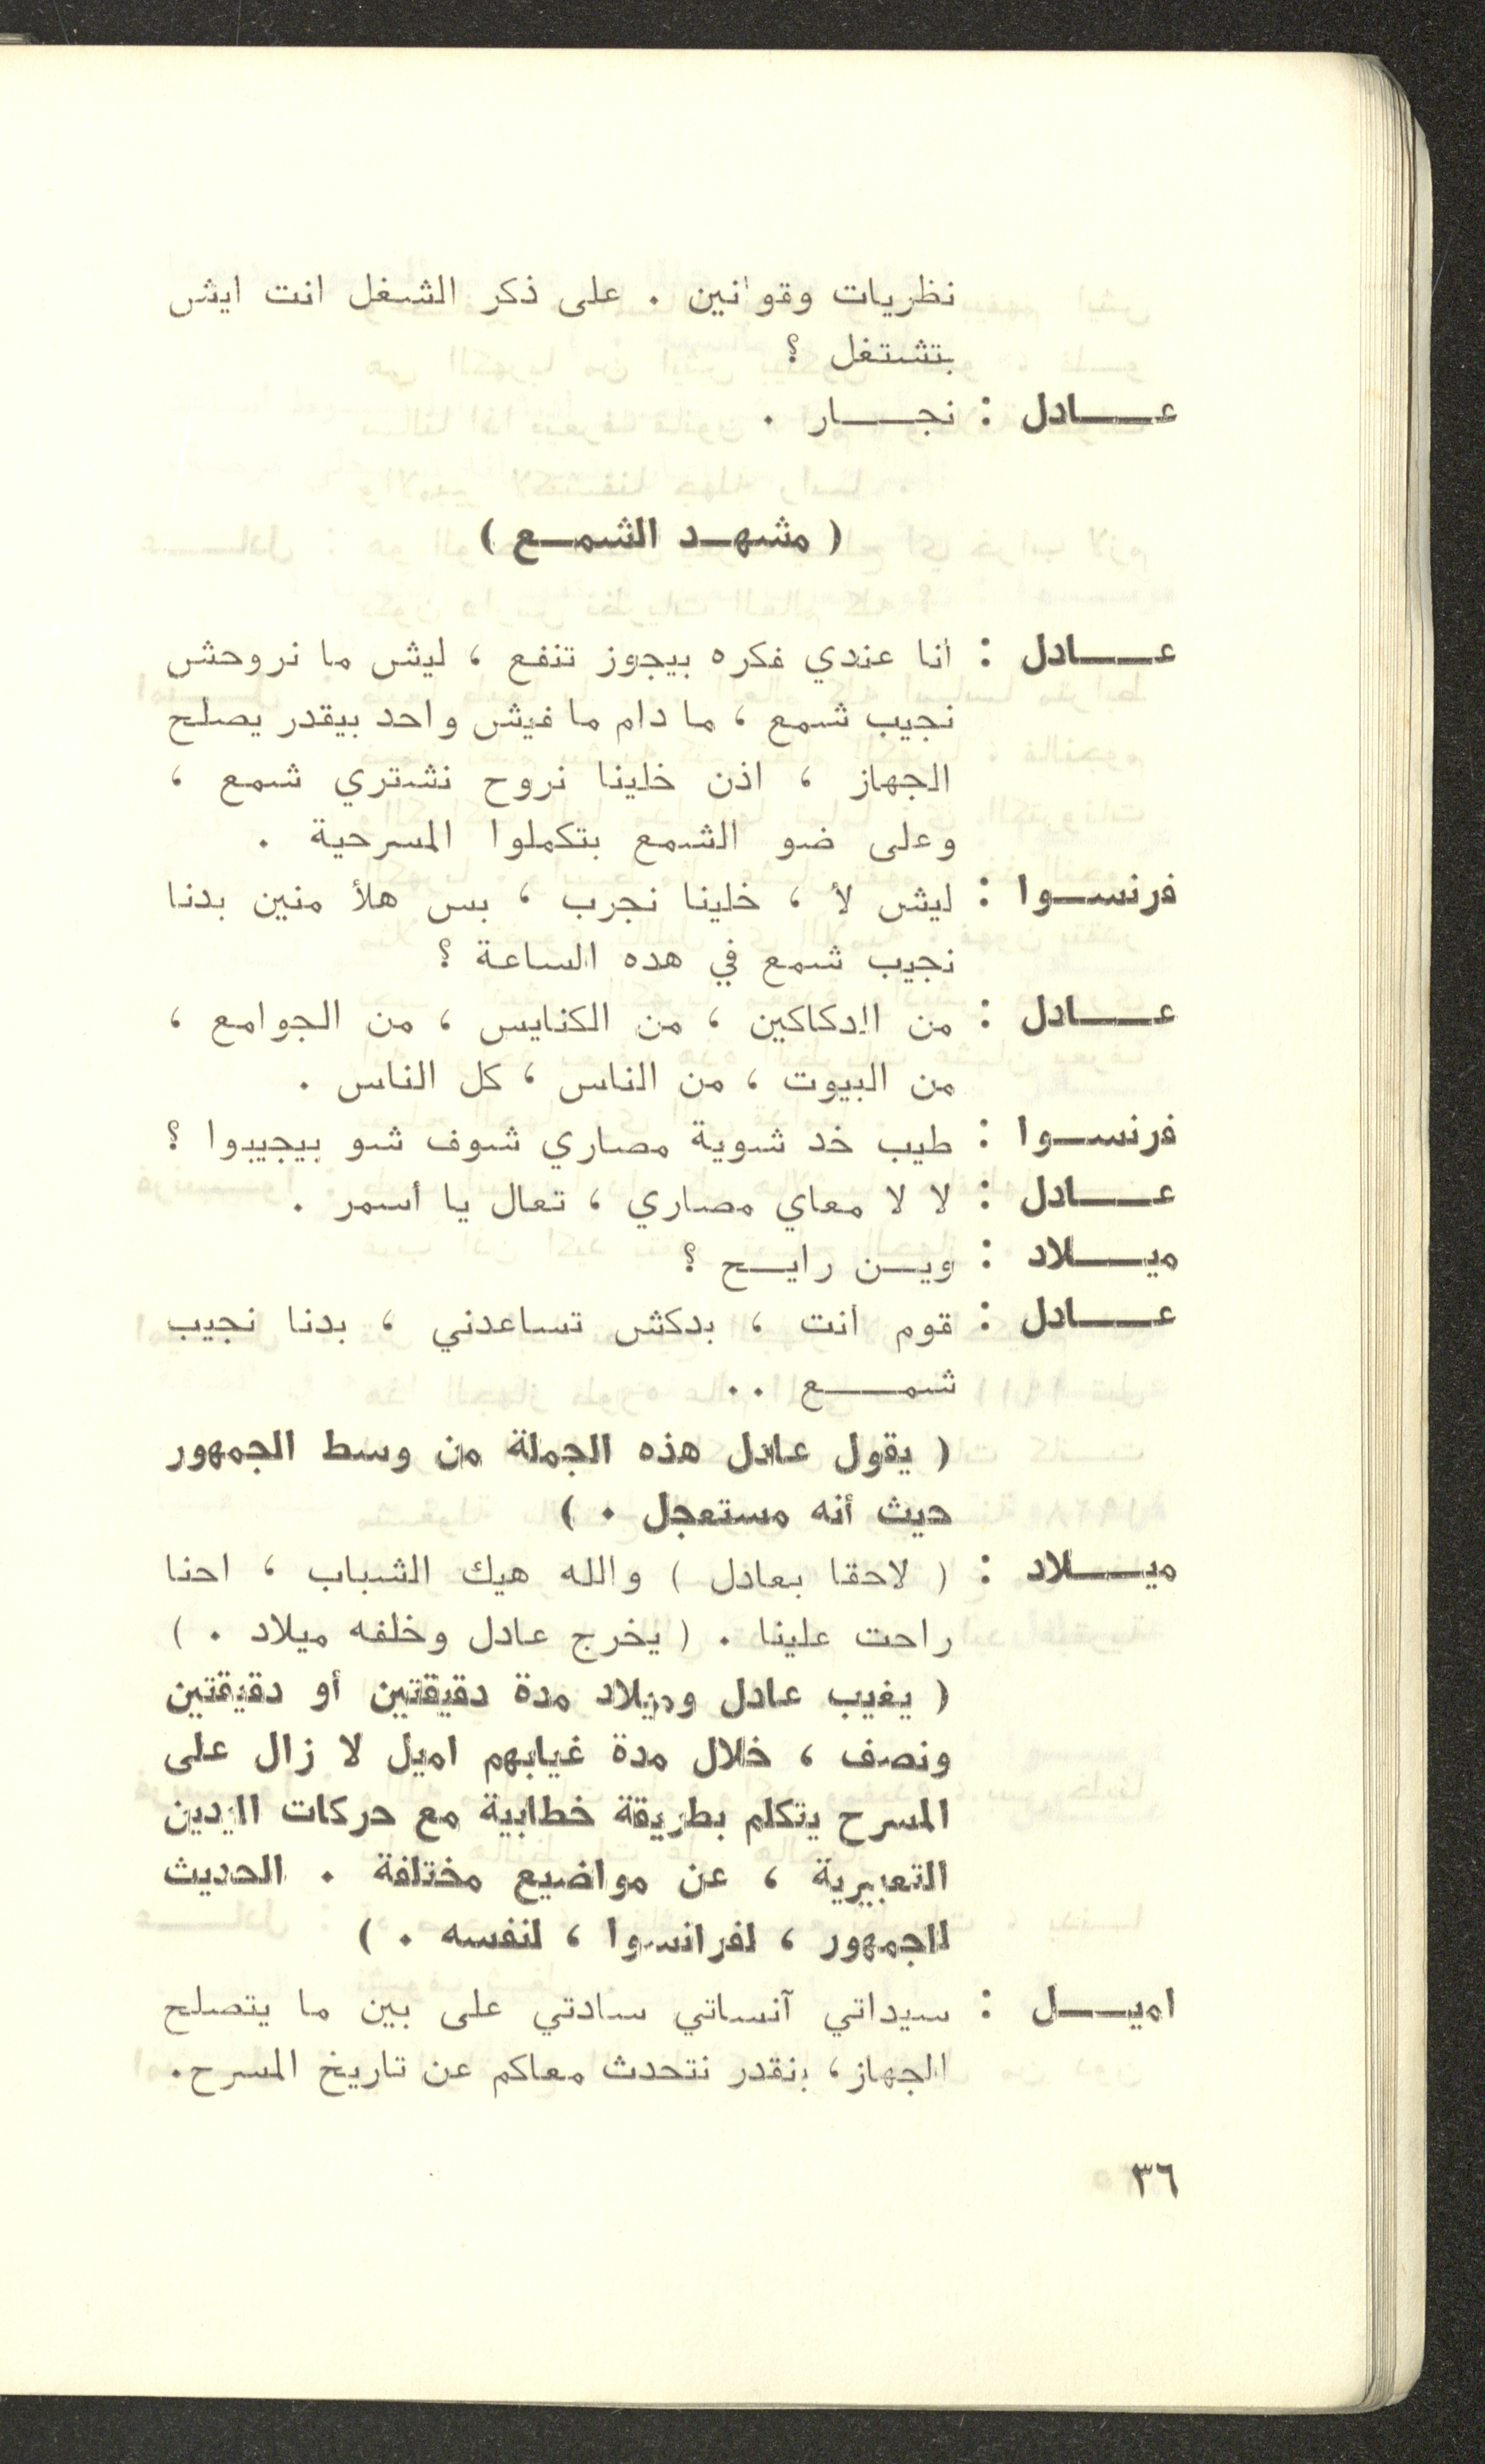 نظريات وقوانين . على ذكر الشغل انت ايش
بتشتغل ؟
عادل : نجار .
( مشهد الشمع )
عادل : أنا عندي فكره بيجوز تنفع ، ليش ما نروحش
نجيب شمع ، ما دام ما فيش واحد بيقدر يصلح
الجهاز ، اذن خلينا نروح نشتري شمع ،
وعلى ضو الشمع بتكملوا المسرحية .
فرنسوا : ليش لأ ، خلينا نجرب ، بس هلأ منين بدنا
نجيب شمع في هده الساعة ؟
عادل : من الدكاكين ، من الكنايس ، من الجوامع ،
من البيوت ، من الناس ، كل الناس .
فرنسوا : طيب خد شوية مصاري شوف شو بيجيبوا ؟
عادل : لا لا معاي مصاري ، تعال يا أسمر .
ميلاد : وين رايح ؟
عادل : قوم انت ، بدكش تساعدني ، بدنا نجيب
شمع . .
( يقول عادل هذه الجملة من وسط الجمهور
حيث أنه مستعجل . )
ميلاد : ( لاحقا بعادل ) والله هيك الشباب ، احنا
راحت علينا . ( يخرج عادل وخلفه ميلاد . )
( يغيب عادل وميلاد مدة دقيقتين أو دقيقتين
ونصف ، خلال مدة غيابهم اميل لا زال على
المسرح يتكلم بطريقة خطابية مع حركات اليدين
التعبيرية ، عن مواضيع مختلفة . الحديث
للجمهور ، لفرانسوا ، لنفسه . )
اميل : سيداتي آنساتي سادتي على بين ما يتصلح
الجهاز ، بنقدر نتحدث معاكم عن تاريخ المسرح .
٣٦